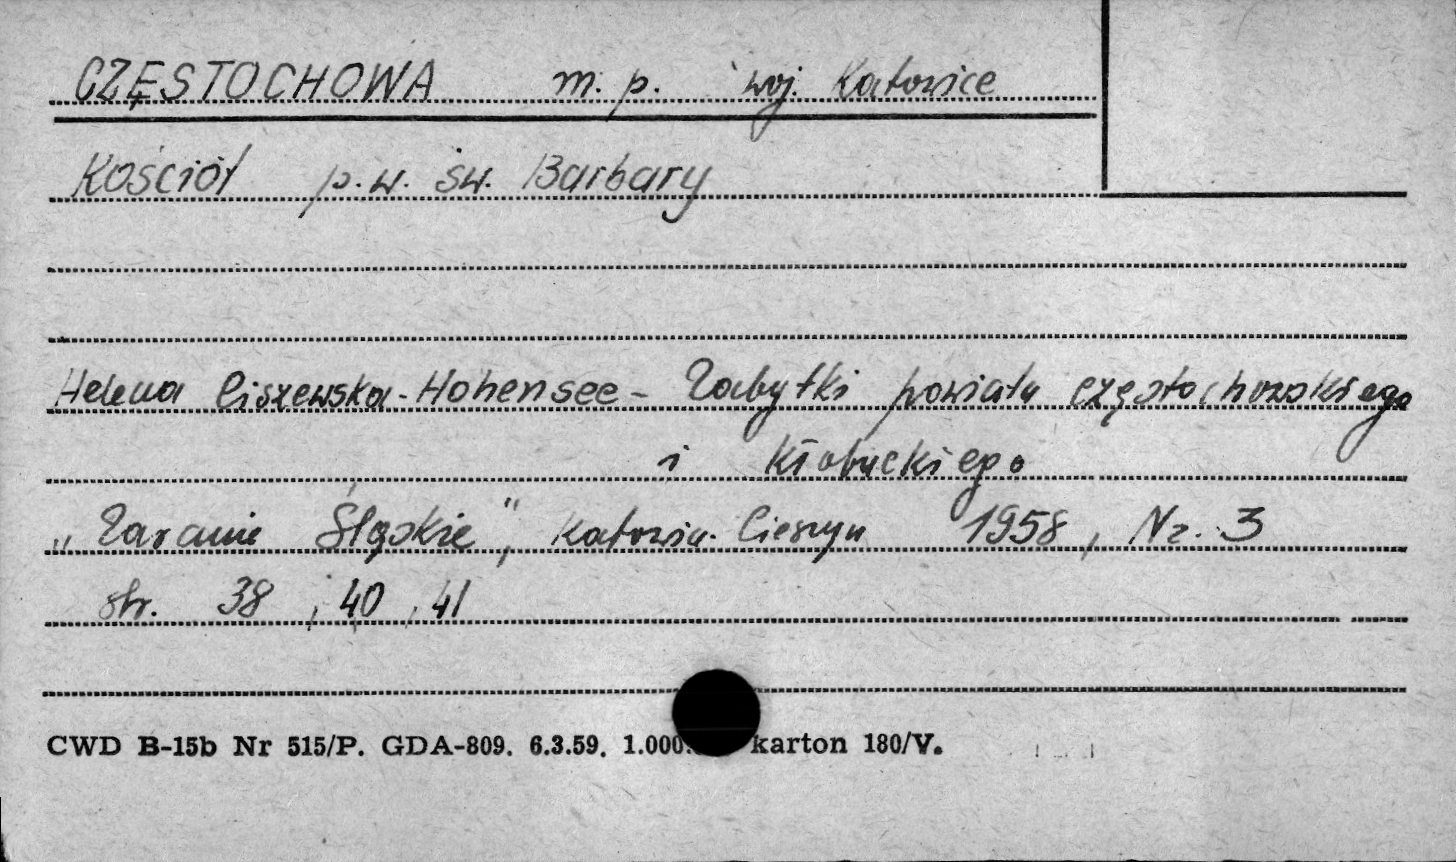 CZĘSTOCHOWA m. p. woj. Katowice
Kościół p.w. św. Barbary
Helena Ciszewska-Hohensee - Zabytki powiatu częstochowskiego
i Kłobuckiego
„Zaranie Śląskie", Katowice-Cieszyn 1958, Nr. 3
str. 38, 40, 41
CWD B-15b Nr 515/P. GDA-809. 6.3.59. 1.000. karton 180/V.